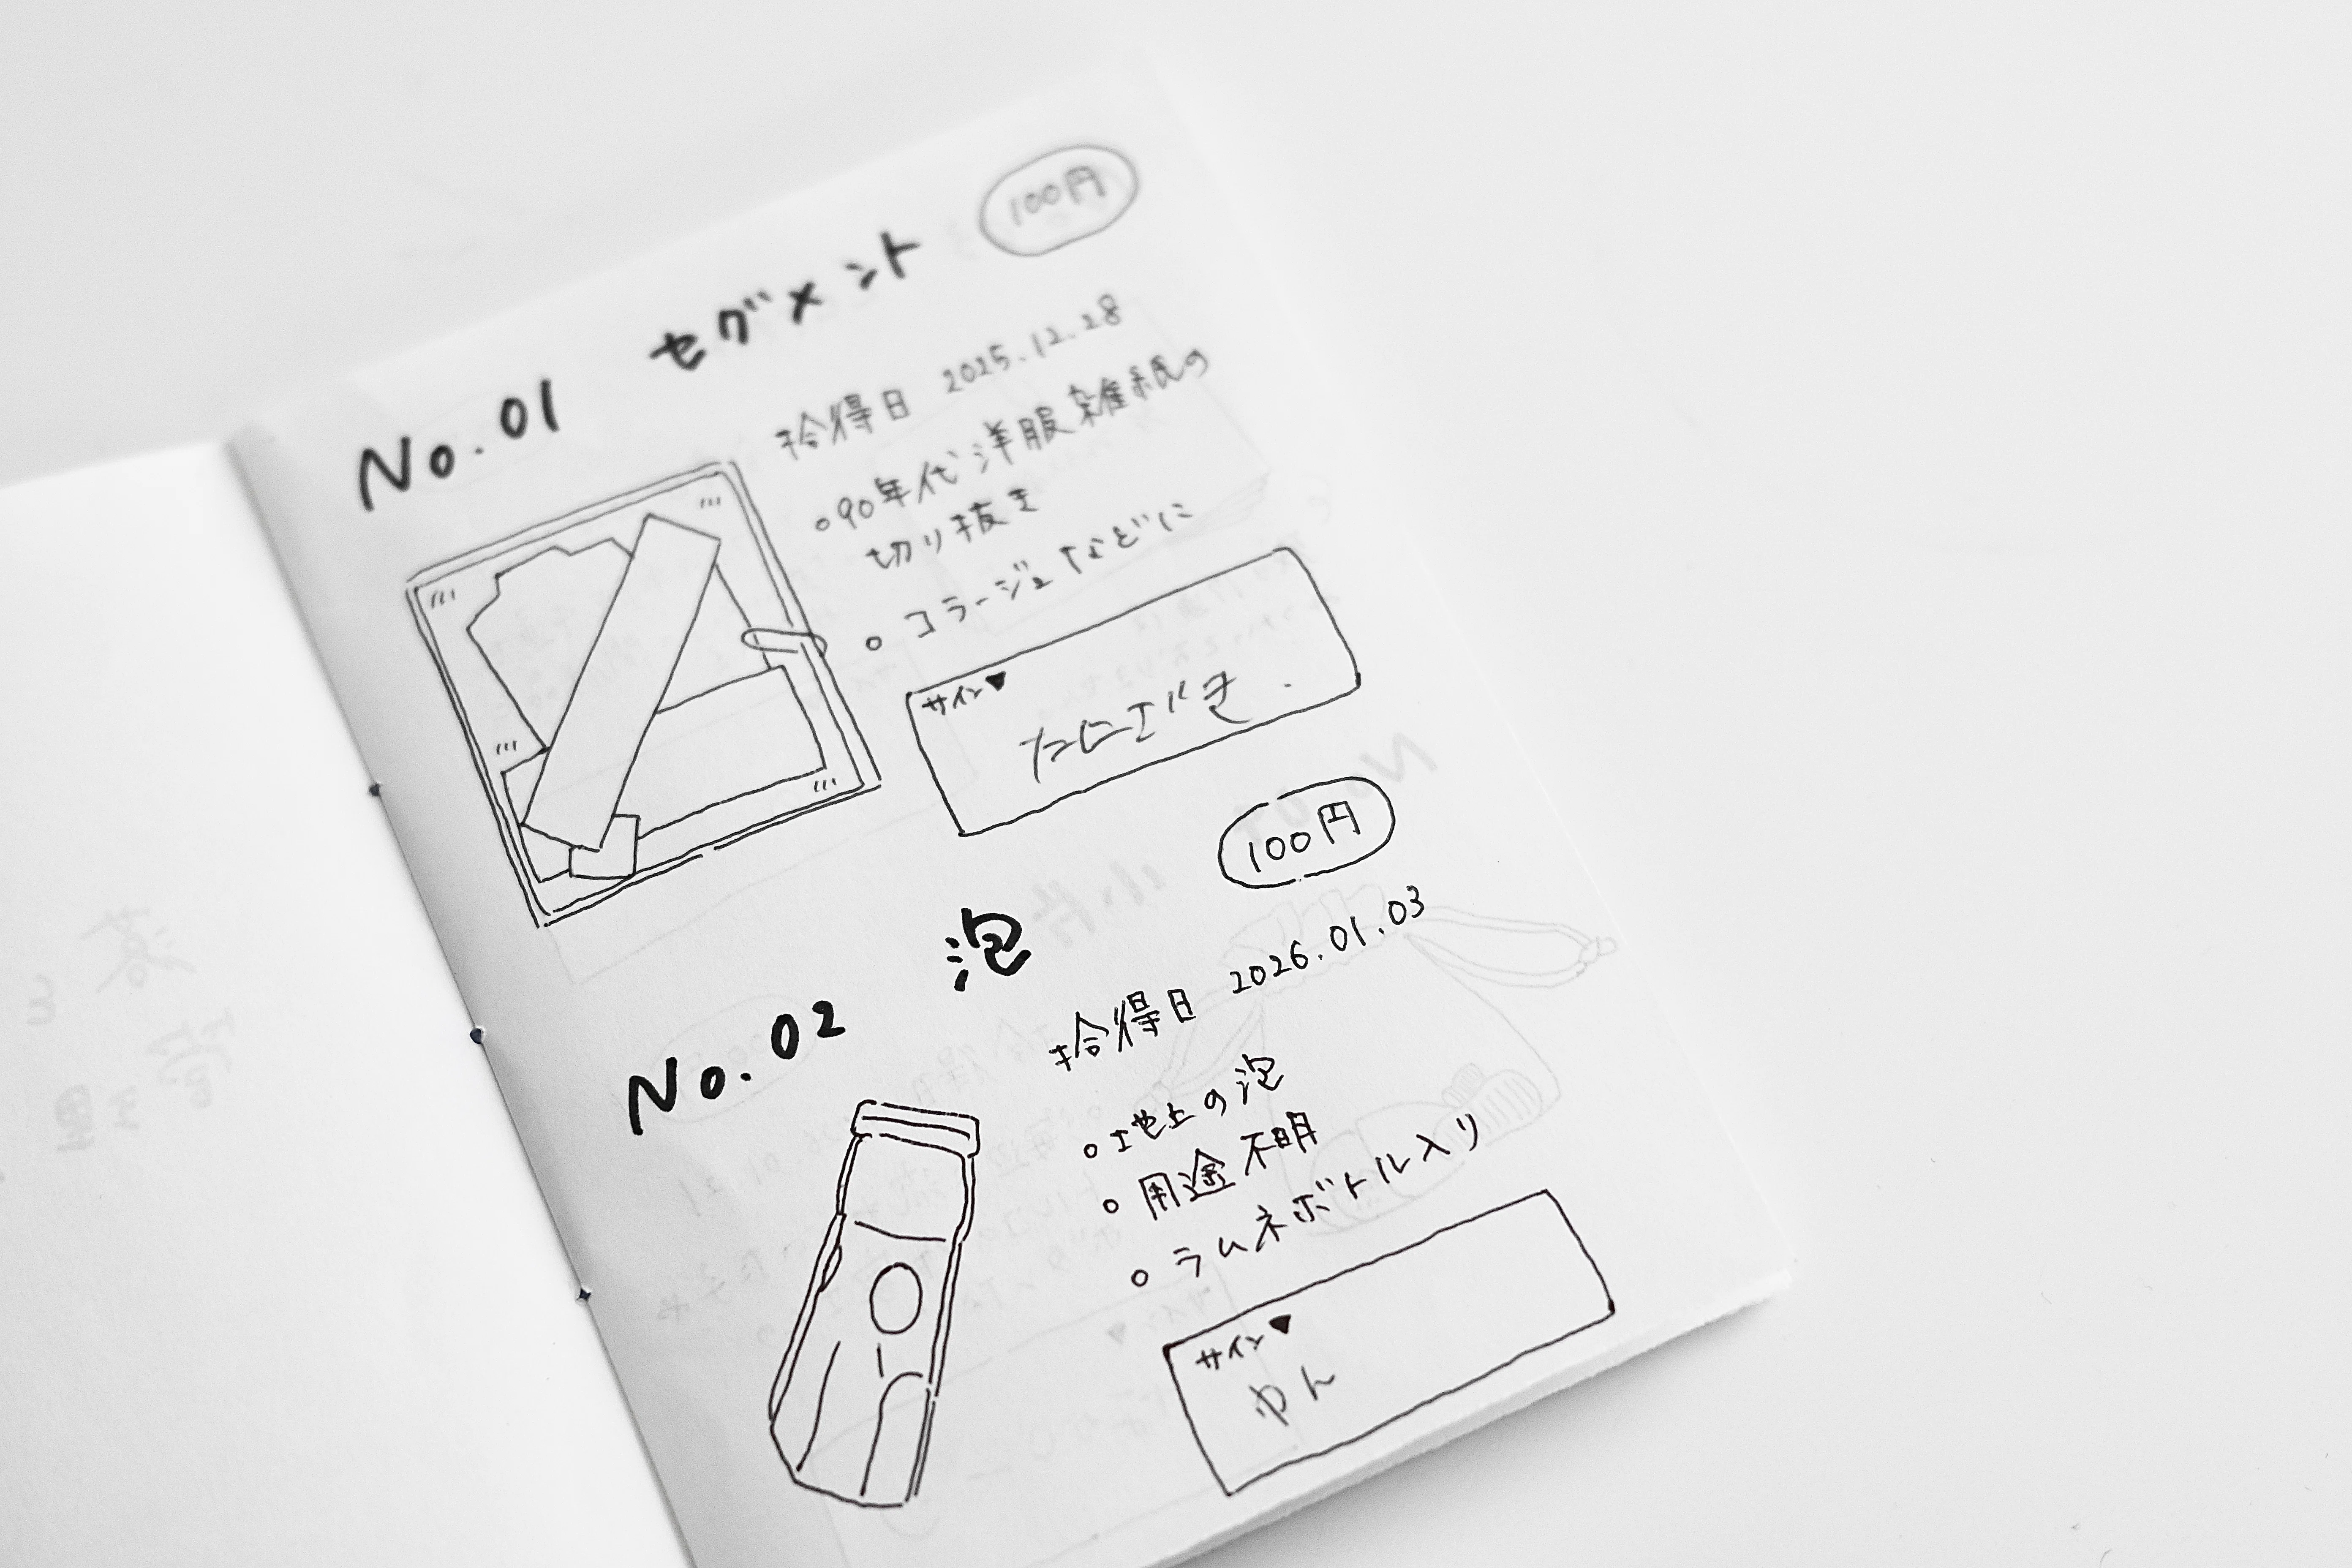 No.01 セグメント 100円
拾得日 2025.12.28
○90年代洋服雑紙の
切り抜き
○コラージュなどに
サイン▼
No.02 泡 100円
拾得日 2026.01.03
○地上の泡
○用途不明
○ラムネボトル入り
サイン▼
ゆん